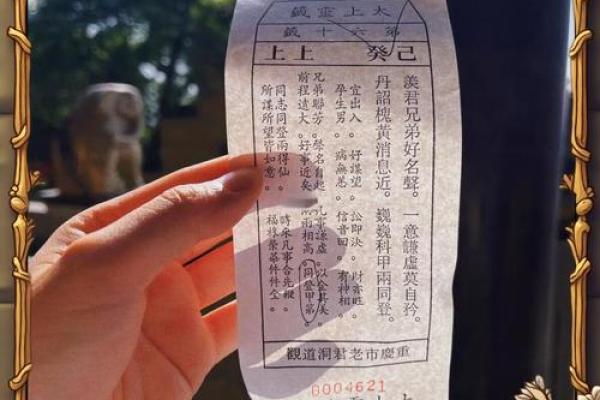 太上靈籤
第六十籤
己癸 上上
羨君兄弟好名聲。一意謙虛莫自矜。
丹詔槐黃消息近。巍巍科甲兩同登。
宜出入。好謀望。訟即決。財亦旺。
孕生男。病無恙。信音回。有神相。
兄弟聯芳。聲名自起。凡事謙虛。以全其美。
前程遠大。好事近矣。雨相高。同登甲第。
同志同登兩得仙。時來凡事合先
所謀所望皆如意。福祿榮華件件全。
重慶市老君洞道觀
0004621